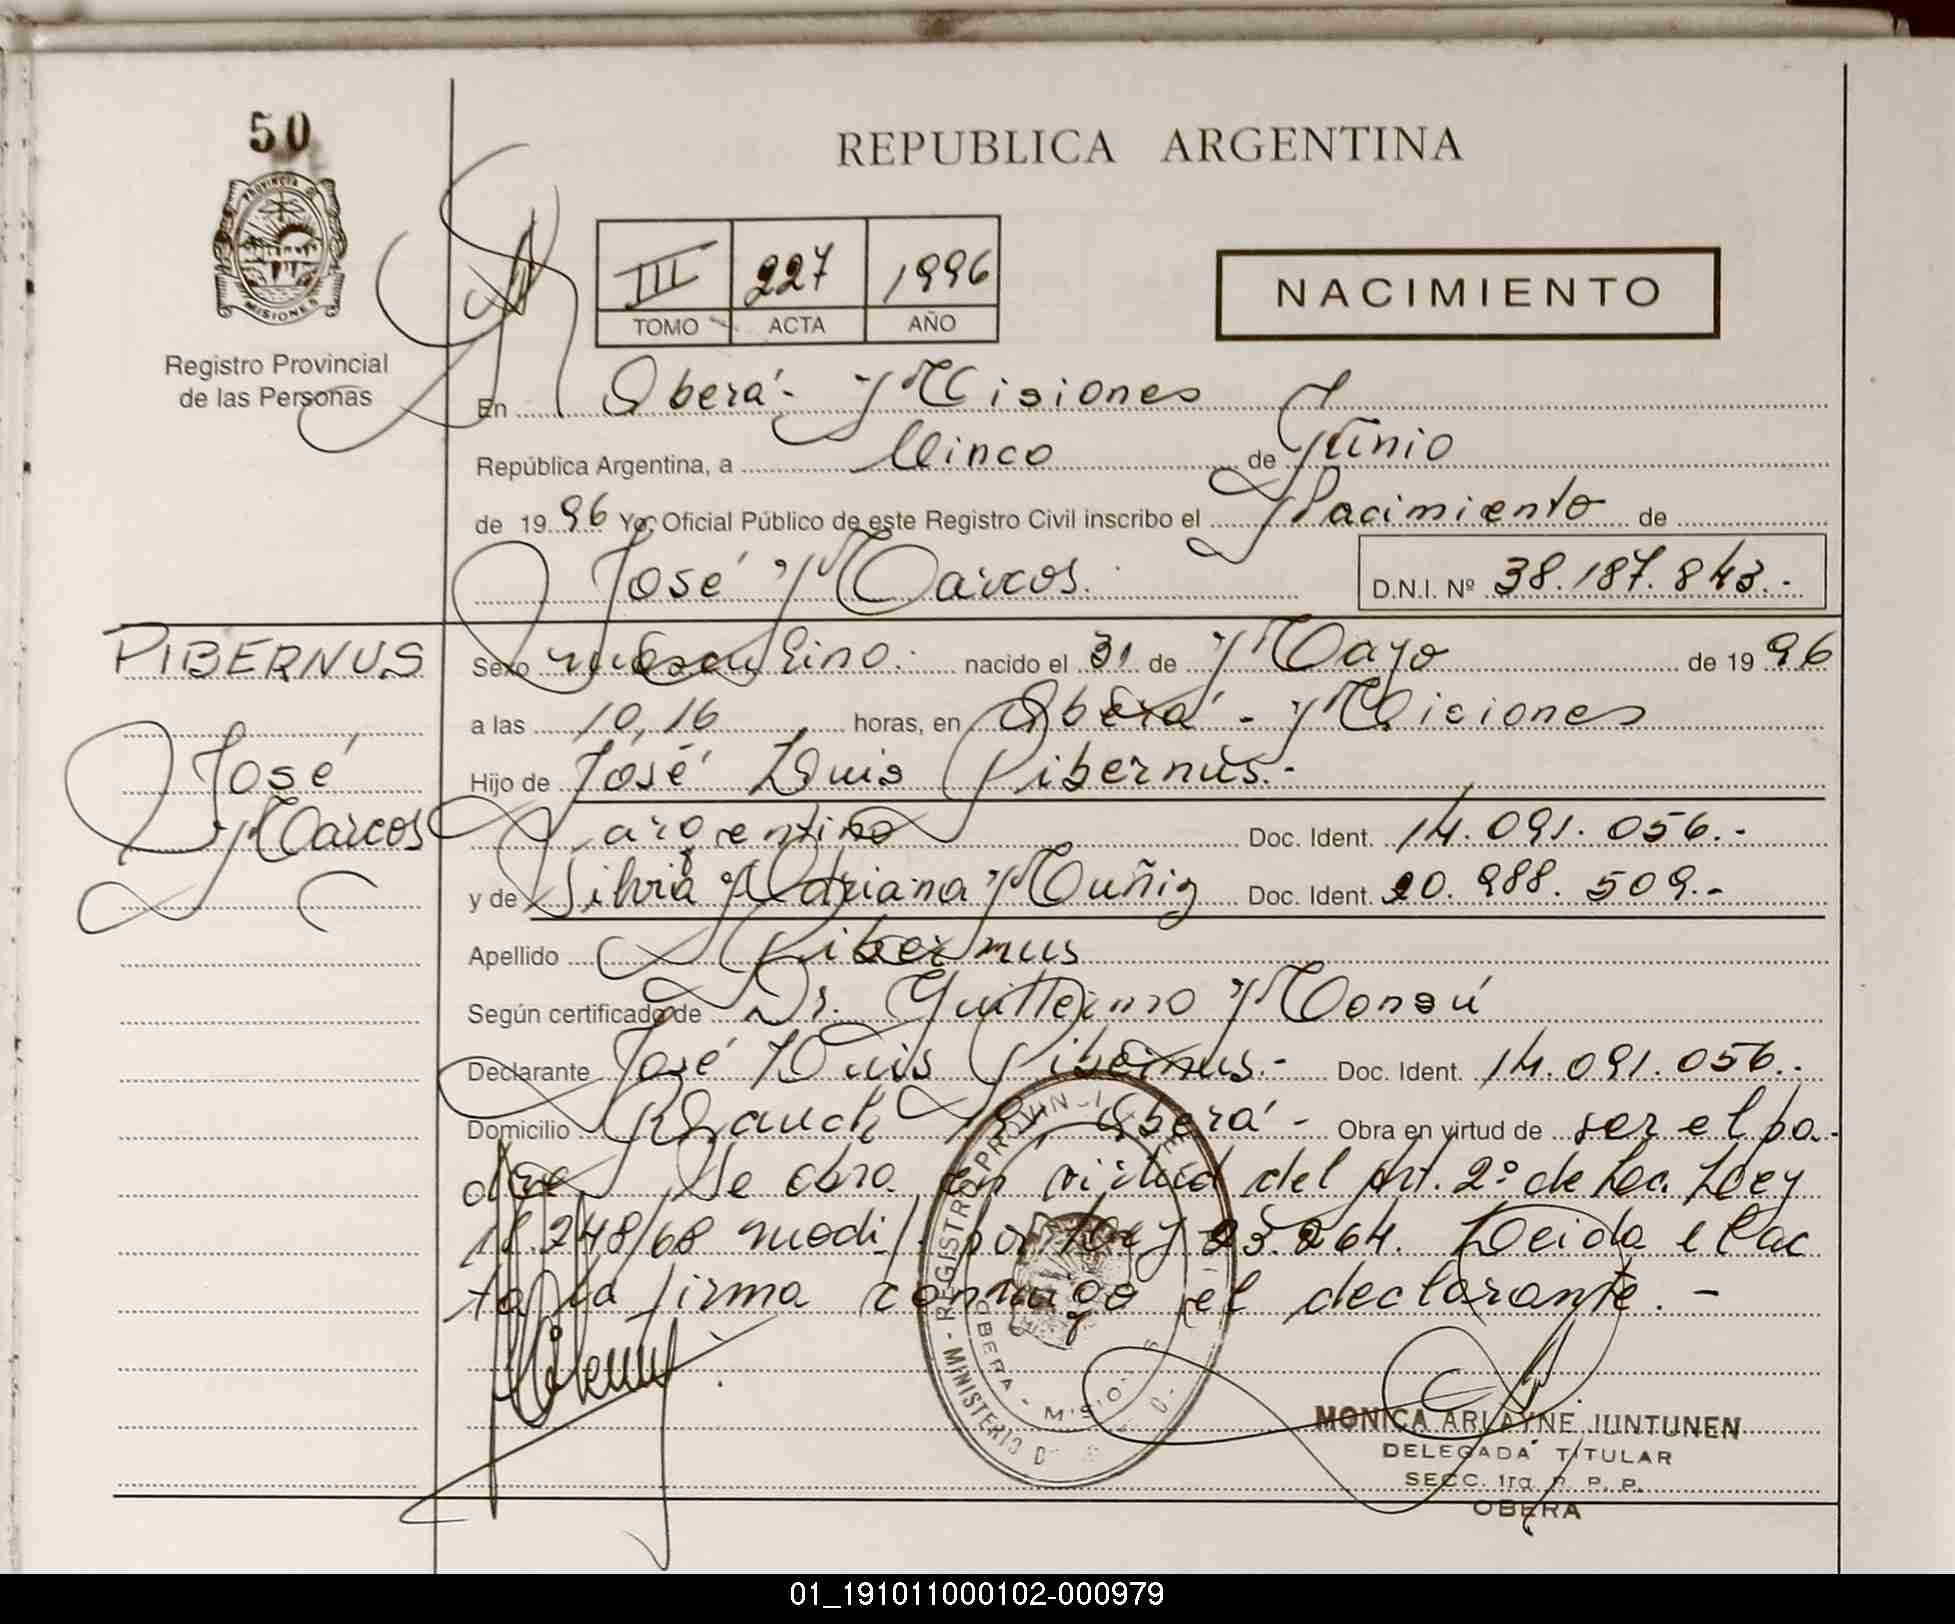 50
PROVINCIA D
MISIONES
Registro Provincial
de las Personas
REPUBLICA ARGENTINA
III 227 1996
TOMO ACTA AÑO
NACIMIENTO
En Oberá - Misiones
República Argentina, a Cinco de Junio
de 1996 Yo, Oficial Público de este Registro Civil inscribo el Nacimiento de
José Marcos. D.N.I. Nº 38.187.843.-
PIBERNUS
José
Marcos
Sexo masculino. nacido el 31 de Mayo de 1996
a las 10,16 horas, en Oberá - Misiones
Hijo de José Luis Pibernus.-
argentino Doc. Ident. 14.091.056.-
y de Silvia Adriana Muñiz Doc. Ident. 20.988.509.-
Apellido Pibernus
Según certificado de Dr. Guillermo Monsú
Declarante José Luis Pibernus.- Doc. Ident. 14.091.056.-
Domicilio Rauch Oberá - Obra en virtud de ser el pa-
dre Se obra en virtud del Art. 2º de la Ley
18.248/68 modif. por Ley 23.264. Leida el ac
ta la firma conmigo el declarante.-
REGISTRO PROVINCI
MINISTERIO D
OBERA - MISIO
MONICA ARLAYNE JUNTUNEN
DELEGADA TITULAR
SECC. 1ra R. P. P.
OBERA
01_191011000102-000979